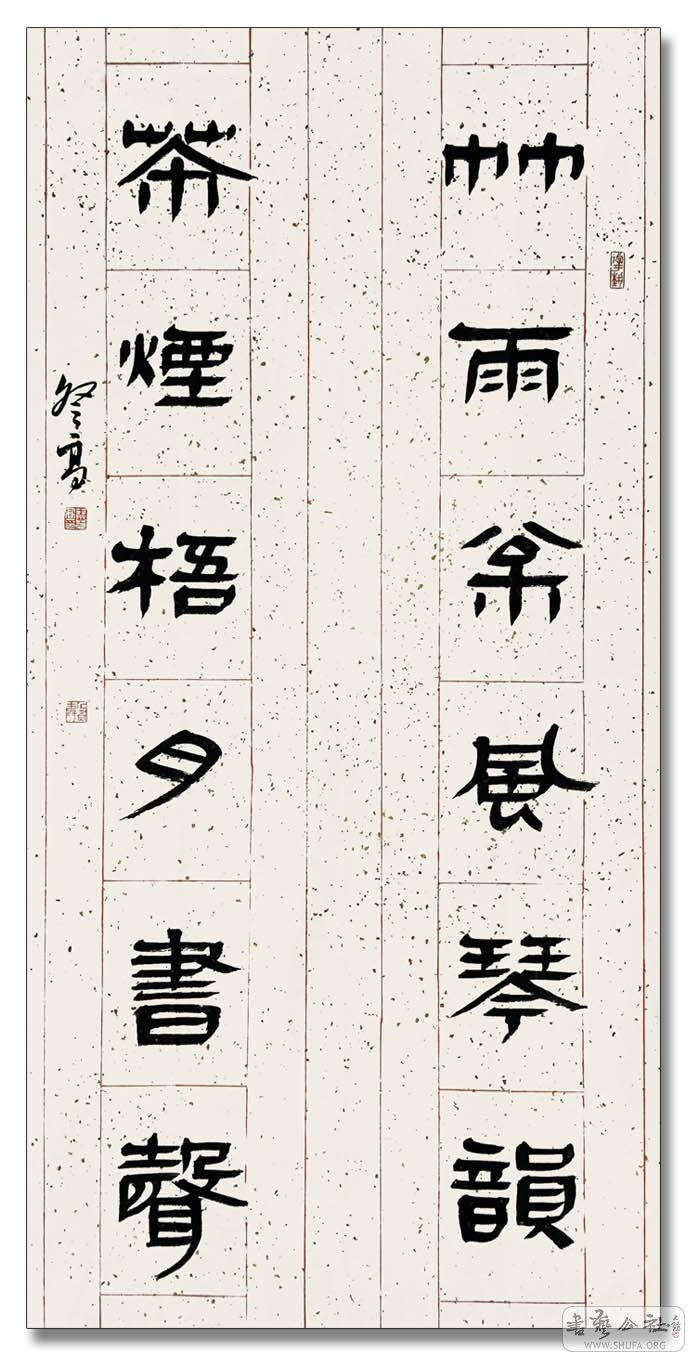 竹雨枀風琴韻
茶煙梧月書聲
高
書藝公社
WWW.SHUFA.ORG